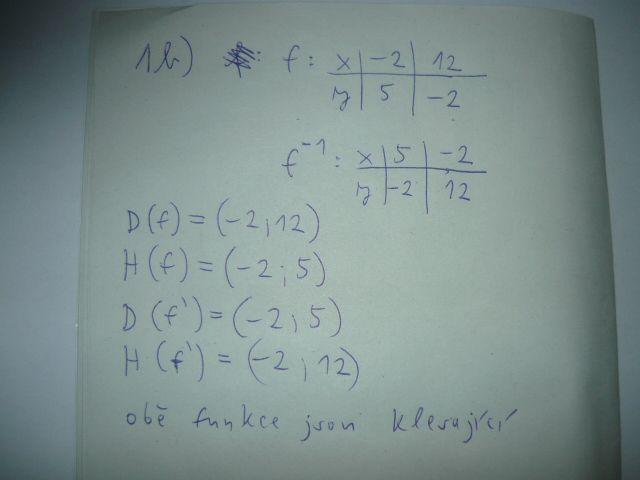 1b) f: x | -2 | 12
y | 5 | -2
f⁻¹: x | 5 | -2
y | -2 | 12
D(f) = (-2; 12)
H(f) = (-2; 5)
D(f') = (-2; 5)
H(f') = (-2; 12)
obě funkce jsou klesající